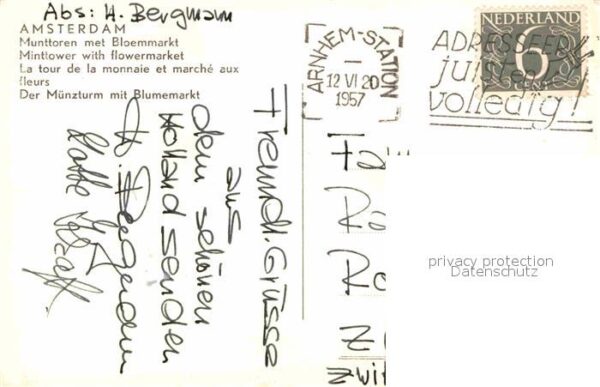 Abs: H. Bergmann
AMSTERDAM
Munttoren met Bloemmarkt
Mintlower with flowermarket
La tour de la monnaie et marché aux
fleurs
Der Münzturm mit Blumemarkt
ARNHEM-STATION
12 VI 20
1957
NEDERLAND
6
CENT
ADRESSEER
juist en
volledig!
Freundl. Grüsse
aus
dem schönen
Holland senden
H. Bergmann
Fa
Rä
Ra
Z
Zwi
privacy protection
Datenschutz